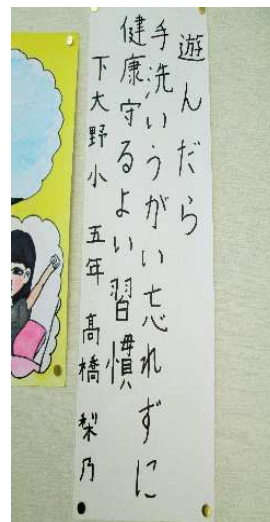 遊んだら
手洗いうがい忘れずに
健康守るよい習慣
下大野小 五年 髙橋 梨乃